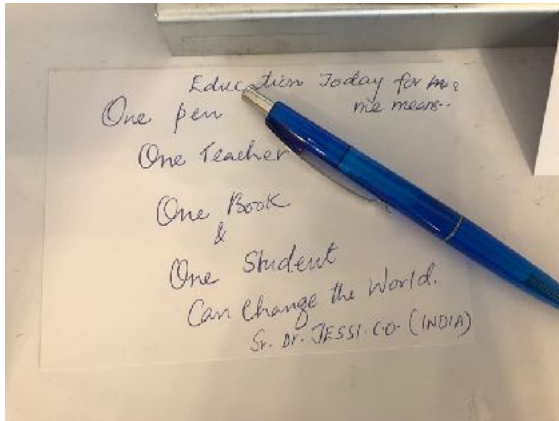 Education Today for me
me means..
One pen
One Teacher
One Book
&
One Student
Can Change the World.
Sr. Dr. JESSI. C.O. (INDIA)